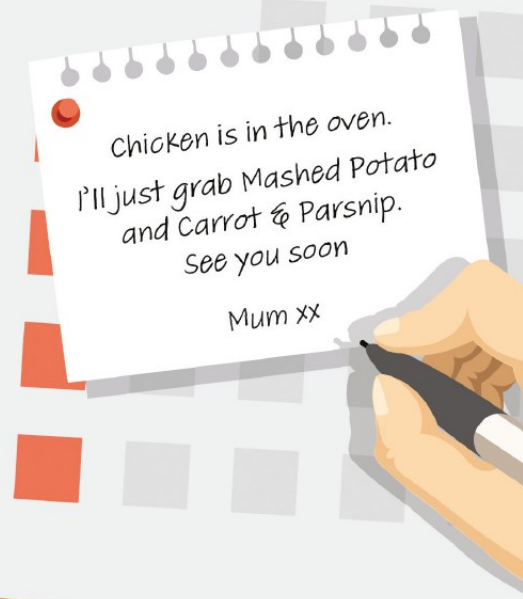 Chicken is in the oven.
I'll just grab Mashed Potato
and Carrot & Parsnip.
See you soon
Mum xx